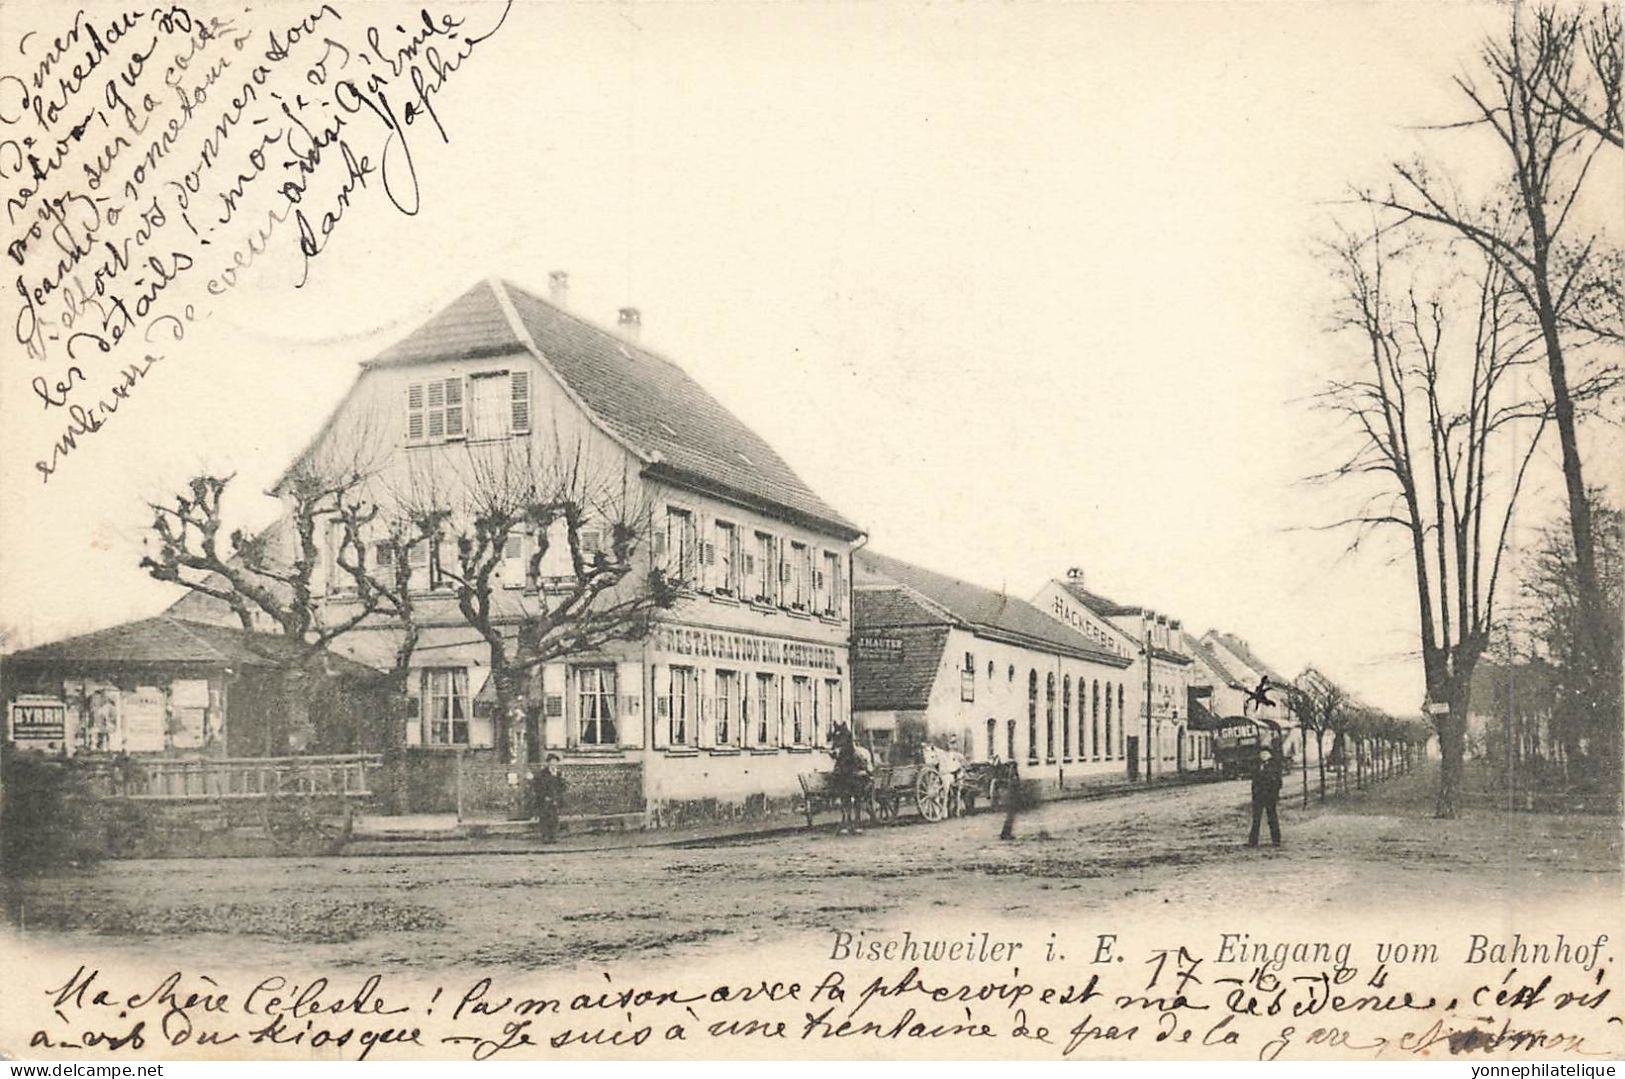 Dîner
de la restau
ration, que vs
voyez sur la carte
Jeanne à son retour à
Belfort vs donnera tous
les détails! moi je vs
embrasse de coeur ainsi qu'Emile
tante Saphie
RESTAURATION EMIL SCHNEIDER
HACKERBRÄU
BYRRH
H. GREINER
Bischweiler i. E. Eingang vom Bahnhof.
17 - 16 - 04
Ma chère Céleste! la maison avec la pte croix est ma résidence. c'est vis
à-vis du Kiosque - Je suis à une trentaine de pas de la gare, et mon
yonnephilatelique